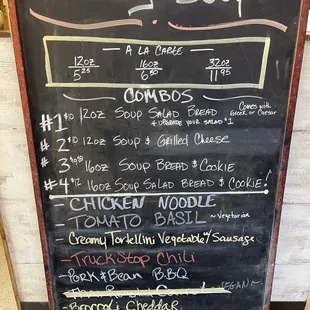 A LA CARTE
12oz 16oz 32oz
5.25 6.50 11.95
COMBOS
#1 $10 12oz SOUP SALAD BREAD Comes with
UPGRADE YOUR SALAD $1 Greek or Caesar
#2 $10 12oz SOUP & Grilled Cheese
#3 $9.95 16oz SOUP BREAD & COOKIE
#4 $12 16oz SOUP SALAD BREAD & COOKIE!
- CHICKEN NOODLE
- TOMATO BASIL ~ Vegetarian
- Creamy Tortellini Vegetable w/ Sausage
- TRUCK STOP CHILI
- PORK & Bean B.B.Q
VEGAN
- Broccoli Cheddar